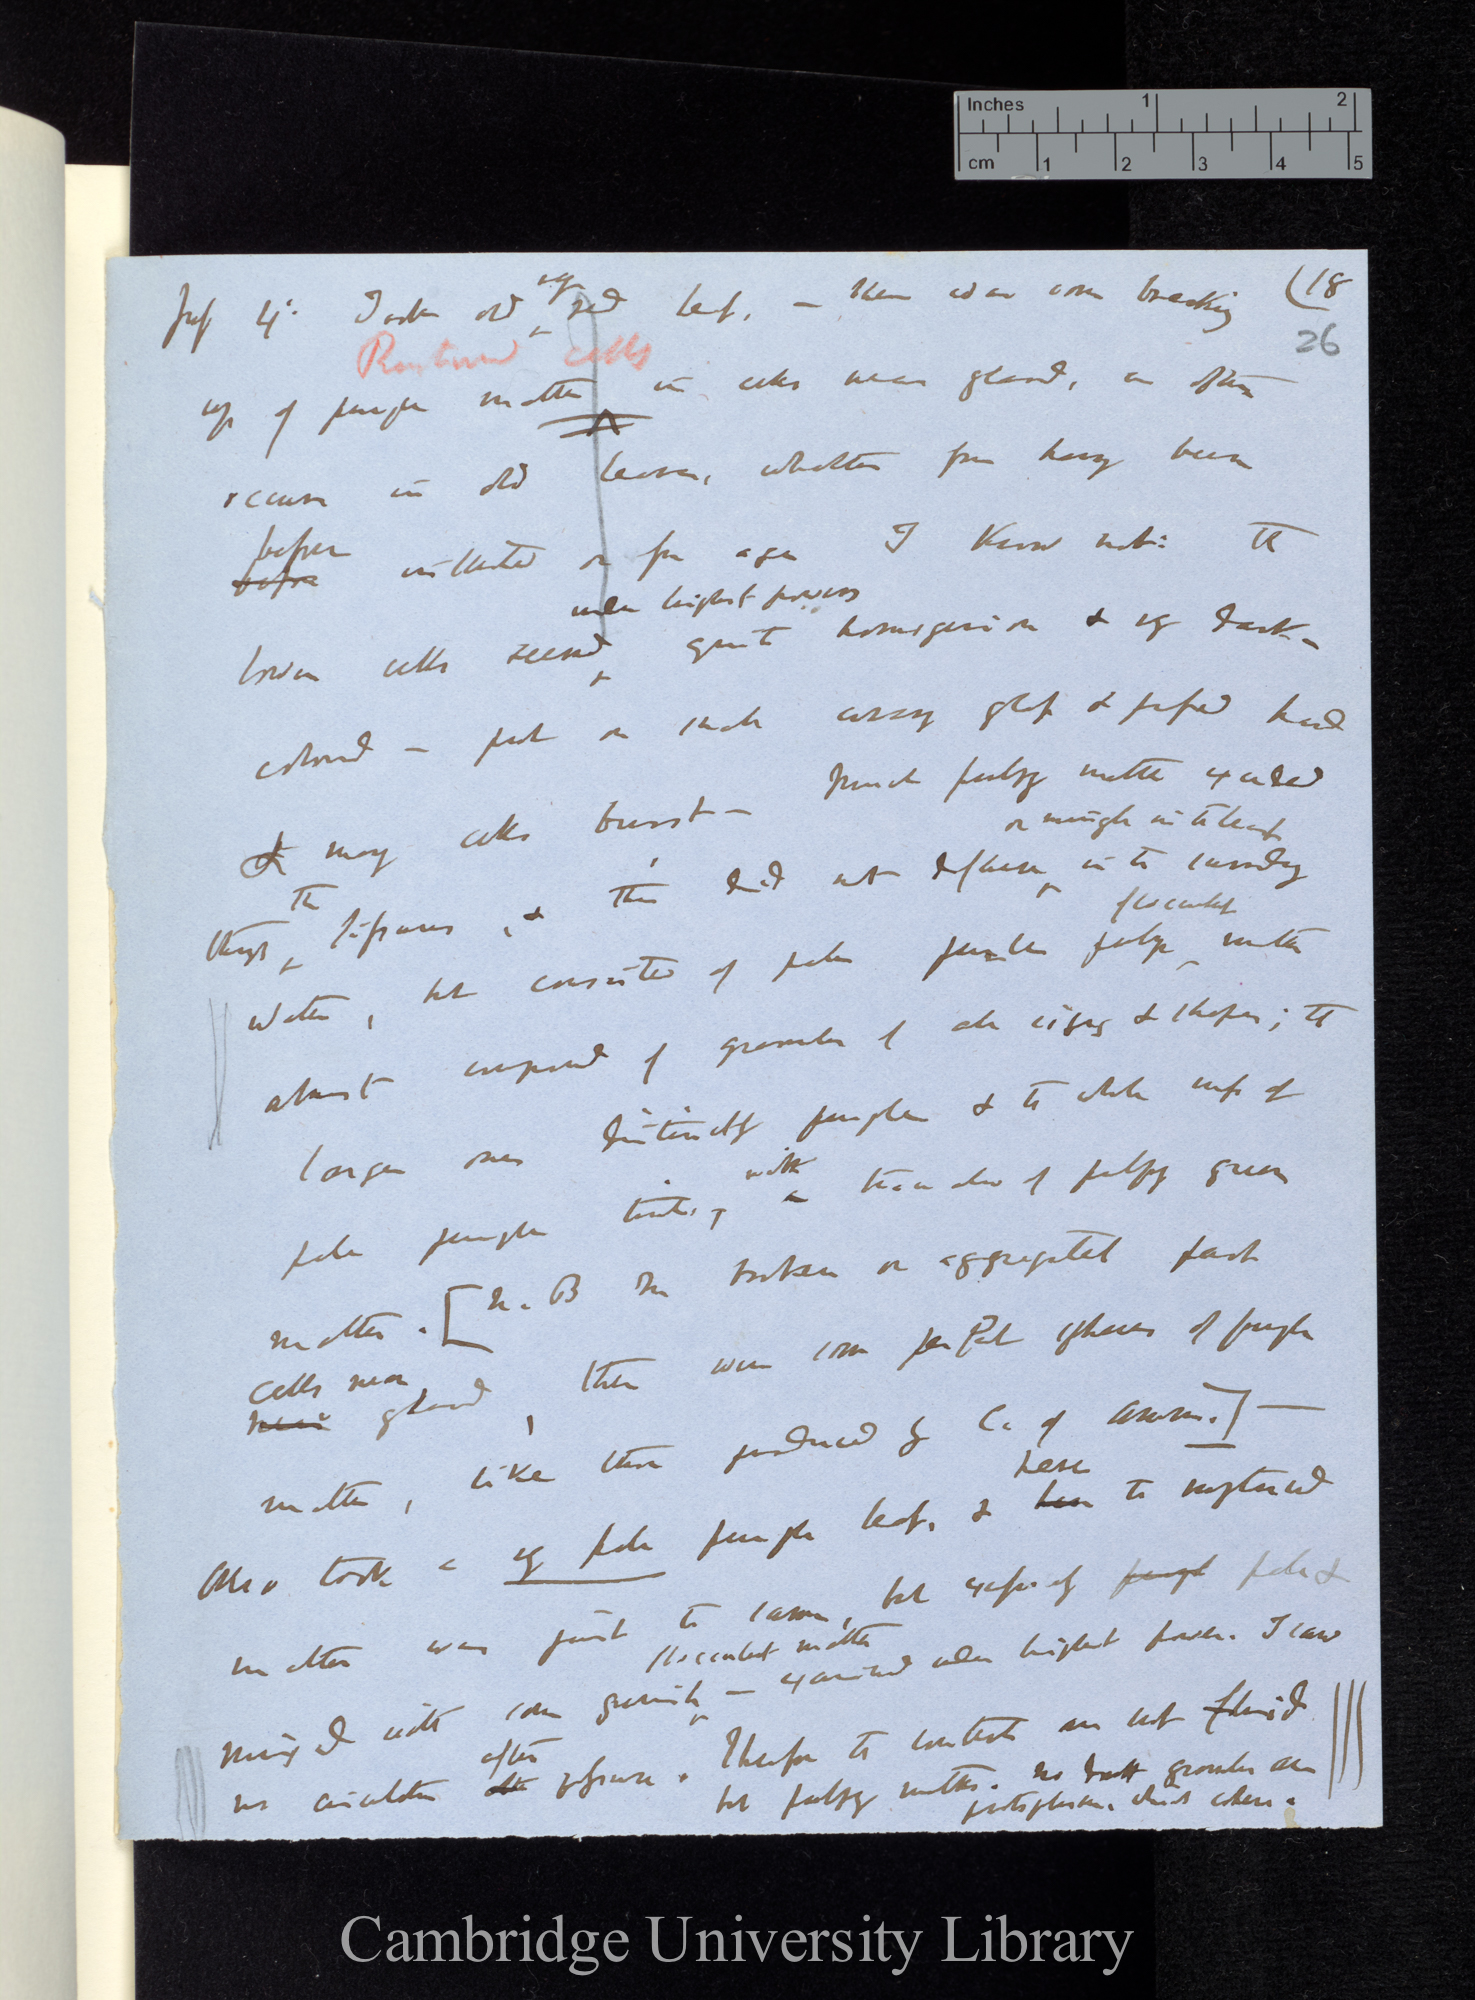 Inches 1 2
cm 1 2 3 4 5
(18
26
July 4'. Took old red leaf, — there was some breaking
Ruptured cells
up of purple matter in cells near gland, as often
occurs in old leaves, whether from having been
before before irritated or from age I know not: The
under highest powers
lower cells seemed quite homogeneous & dark-
coloured — put on under glass & pressed hard
& many cells burst — Much pulpy matter exuded
or mingle in the least
through the fissures, & this did not diffuse in the surrounding
flocculent
water, but consisted of pale purple pulpy matter
almost composed of granules of all sizes & shapes; the
larger ones distinctly purple & the whole mass of
pale purple tint, with a of pulpy green
matter. [N.B In broken or aggregated part
cells near
near gland, there were some perfect spheres of purple
matter, like those produced by C. of Ammon.] —
Also took a vy pale purple leaf, & here here the ruptured
matter was just the same, but purple pale &
flocculent matter
mingled with some granules — examined under highest power. I saw
no circulation after pressure. Therefore the contents are not fluid
but pulpy matter. no granules are
protoplasm, which coheres.
Cambridge University Library